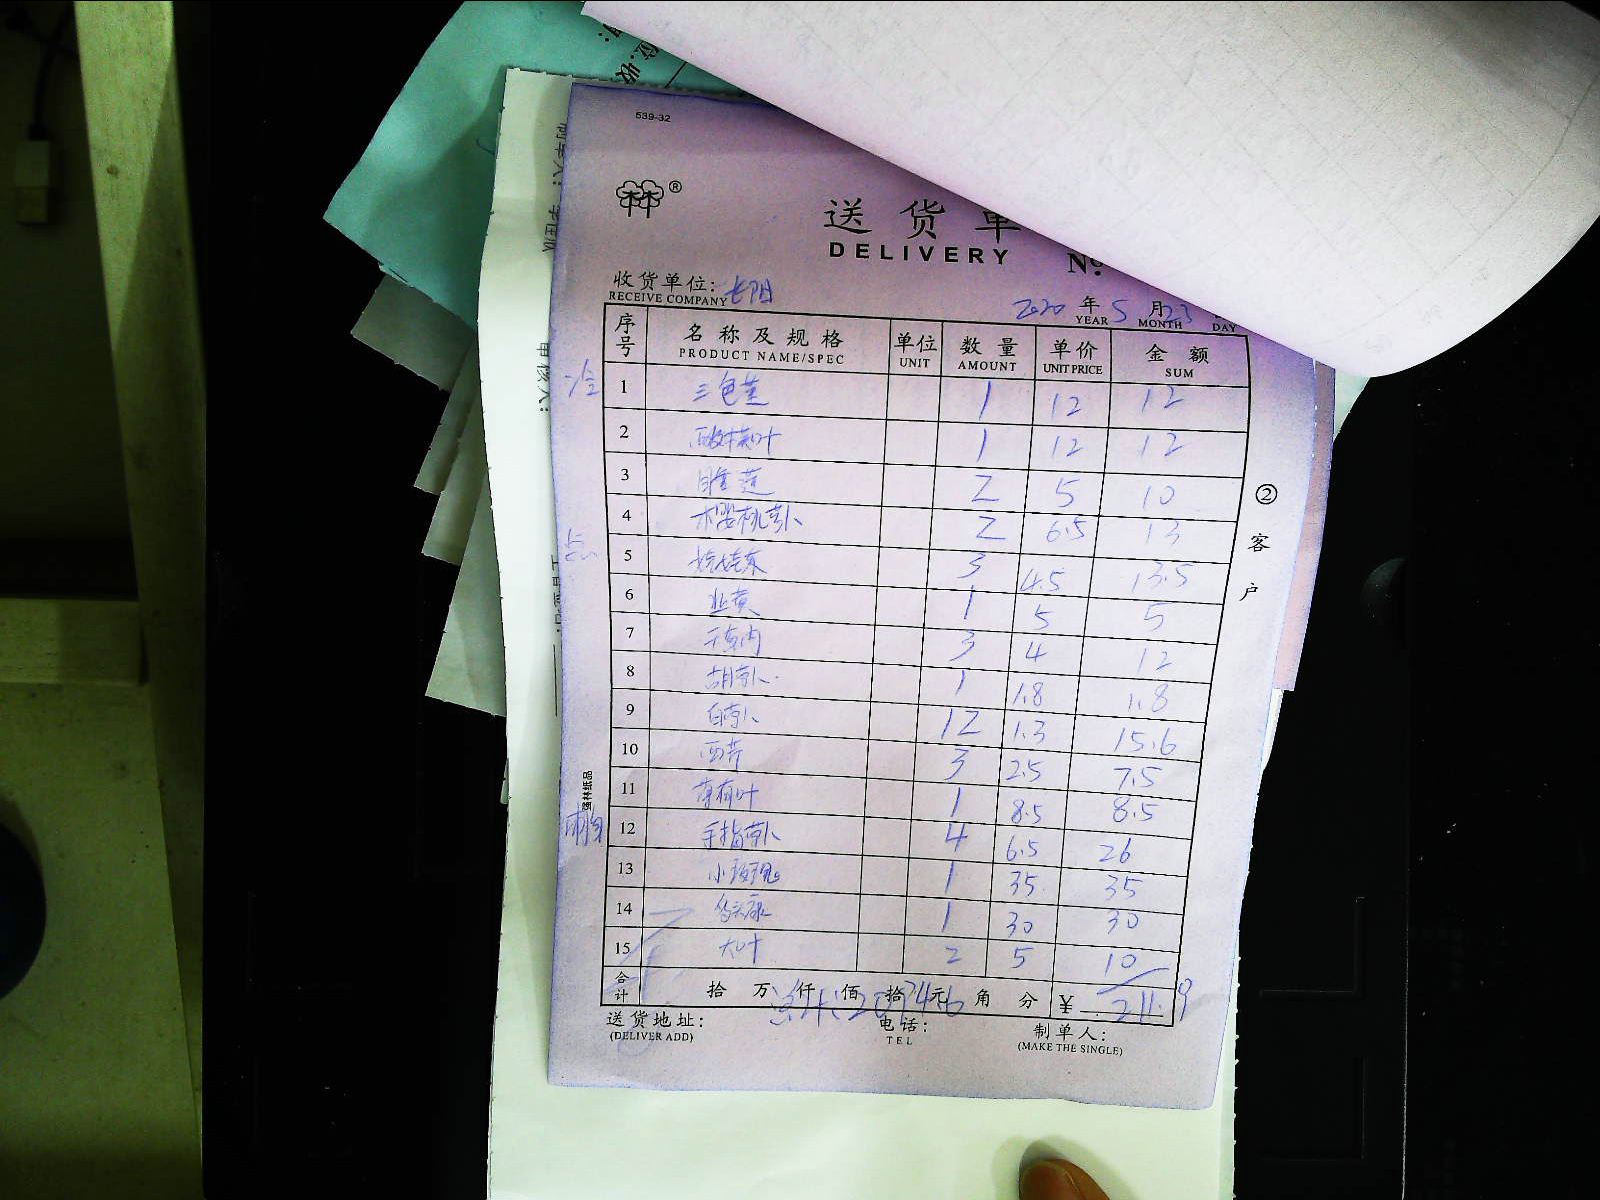 539-32
®
送货单
DELIVERY
№
收货单位: 长阳 2020 年 5 月 23
RECEIVE COMPANY YEAR MONTH DAY
序号 名称及规格 单位 数量 单价 金额
PRODUCT NAME/SPEC UNIT AMOUNT UNIT PRICE SUM
冷 1 三色堇 1 12 12
2 1 12 12
3 睡莲 2 5 10
4 樱桃萝卜 2 6.5 13
点心 5 3 4.5 13.5
6 韭黄 1 5 5
7 3 4 12
8 胡萝卜 1 1.8 1.8
9 白萝卜 12 1.3 15.6
10 西芹 3 2.5 7.5
11 薄荷叶 1 8.5 8.5
12 手指萝卜 4 6.5 26
13 小玫瑰 1 35 35
14 1 30 30
15 大叶 2 5 10
合计 拾 万 仟 佰 拾 元 角 分 ¥ 211.9
送货地址: 电话: 制单人:
(DELIVER ADD) TEL (MAKE THE SINGLE)
② 客户
强林纸品